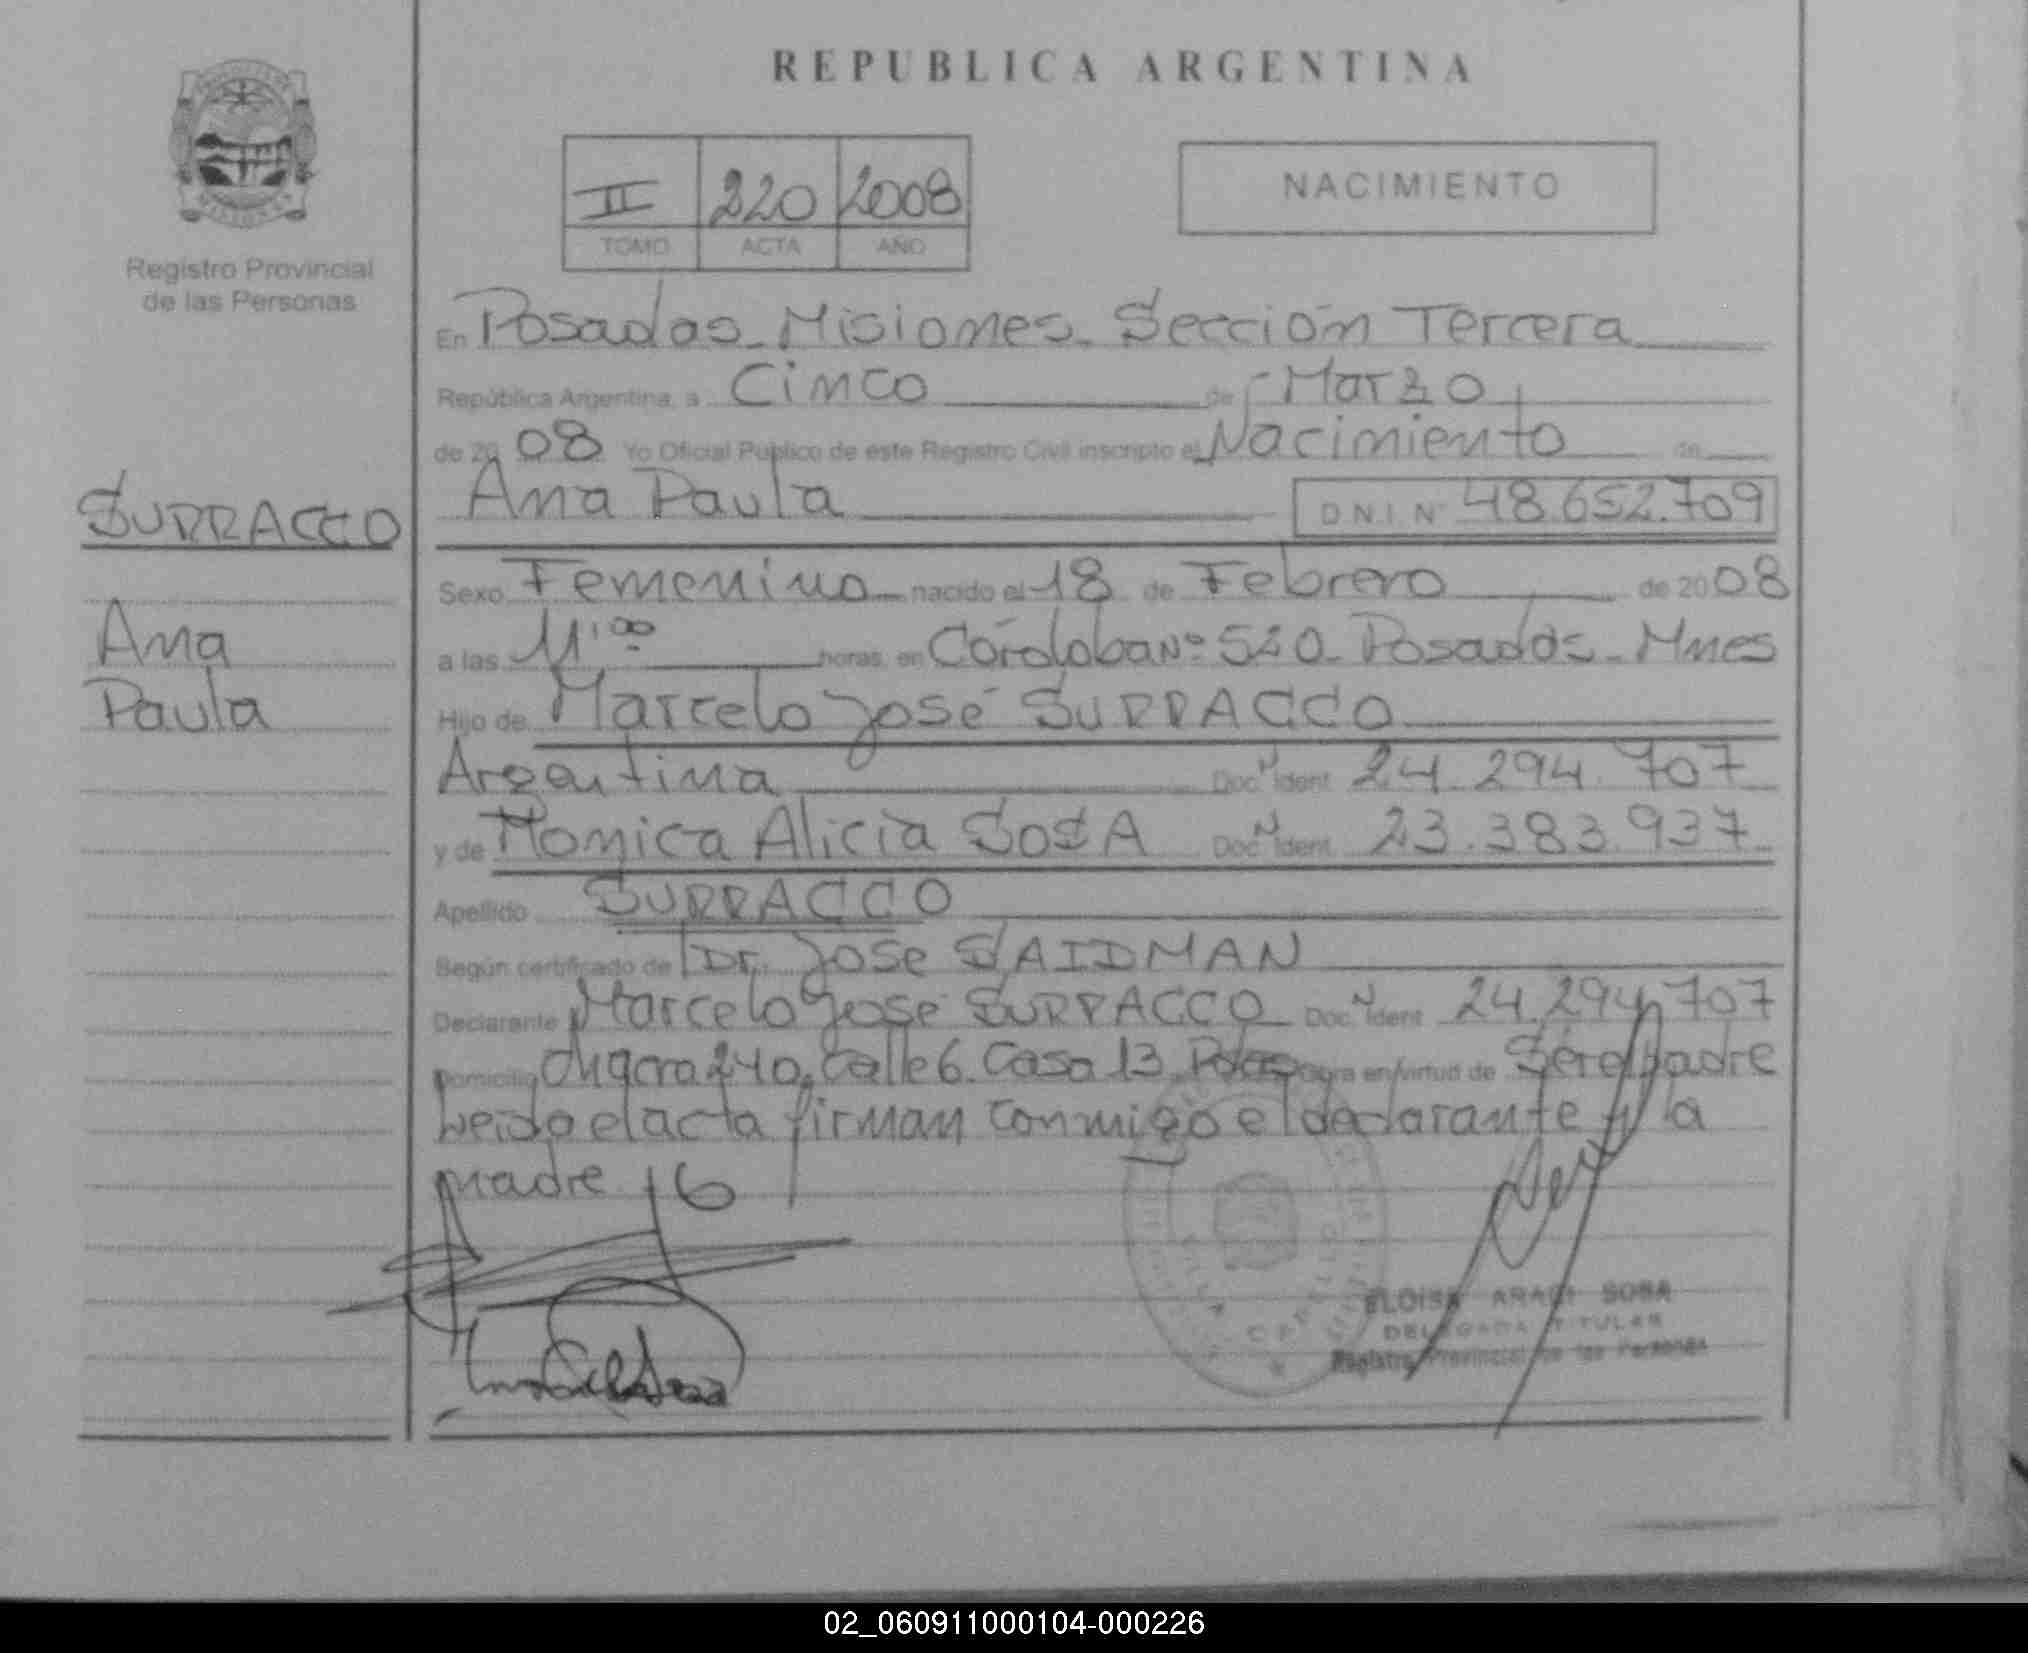 REPUBLICA ARGENTINA
MISIONES
Registro Provincial
de las Personas
II 220 2008
TOMO ACTA AÑO
NACIMIENTO
En Posadas - Misiones - Sección Tercera
República Argentina, a Cinco de Marzo
de 2008 Yo Oficial Público de este Registro Civil inscripto el Nacimiento de
Ana Paula D N I N° 48.652.709
SURRACCO
Ana
Paula
Sexo Femenino nacido el 18 de Febrero de 2008
a las 11:00 horas en Córdoba Nº 520 - Posadas - Mnes
Hijo de Marcelo José SURRACCO
Argentina Doc. N Ident 24.294.707
y de Monica Alicia SOSA Doc. N Ident 23.383.937
Apellido SURRACCO
Según certificado de Dr. Jose SAIDMAN
Declarante Marcelo José SURRACCO Doc. N Ident 24.294.707
Domicilio Chacra 240, Calle 6. Casa 13. Pdas Obra en virtud de Ser el padre
Leida el acta firman conmigo el declarante y la
madre
ELOISA ARACI SOSA
DELEGADA TITULAR
Registro Provincial de las Personas
02_060911000104-000226